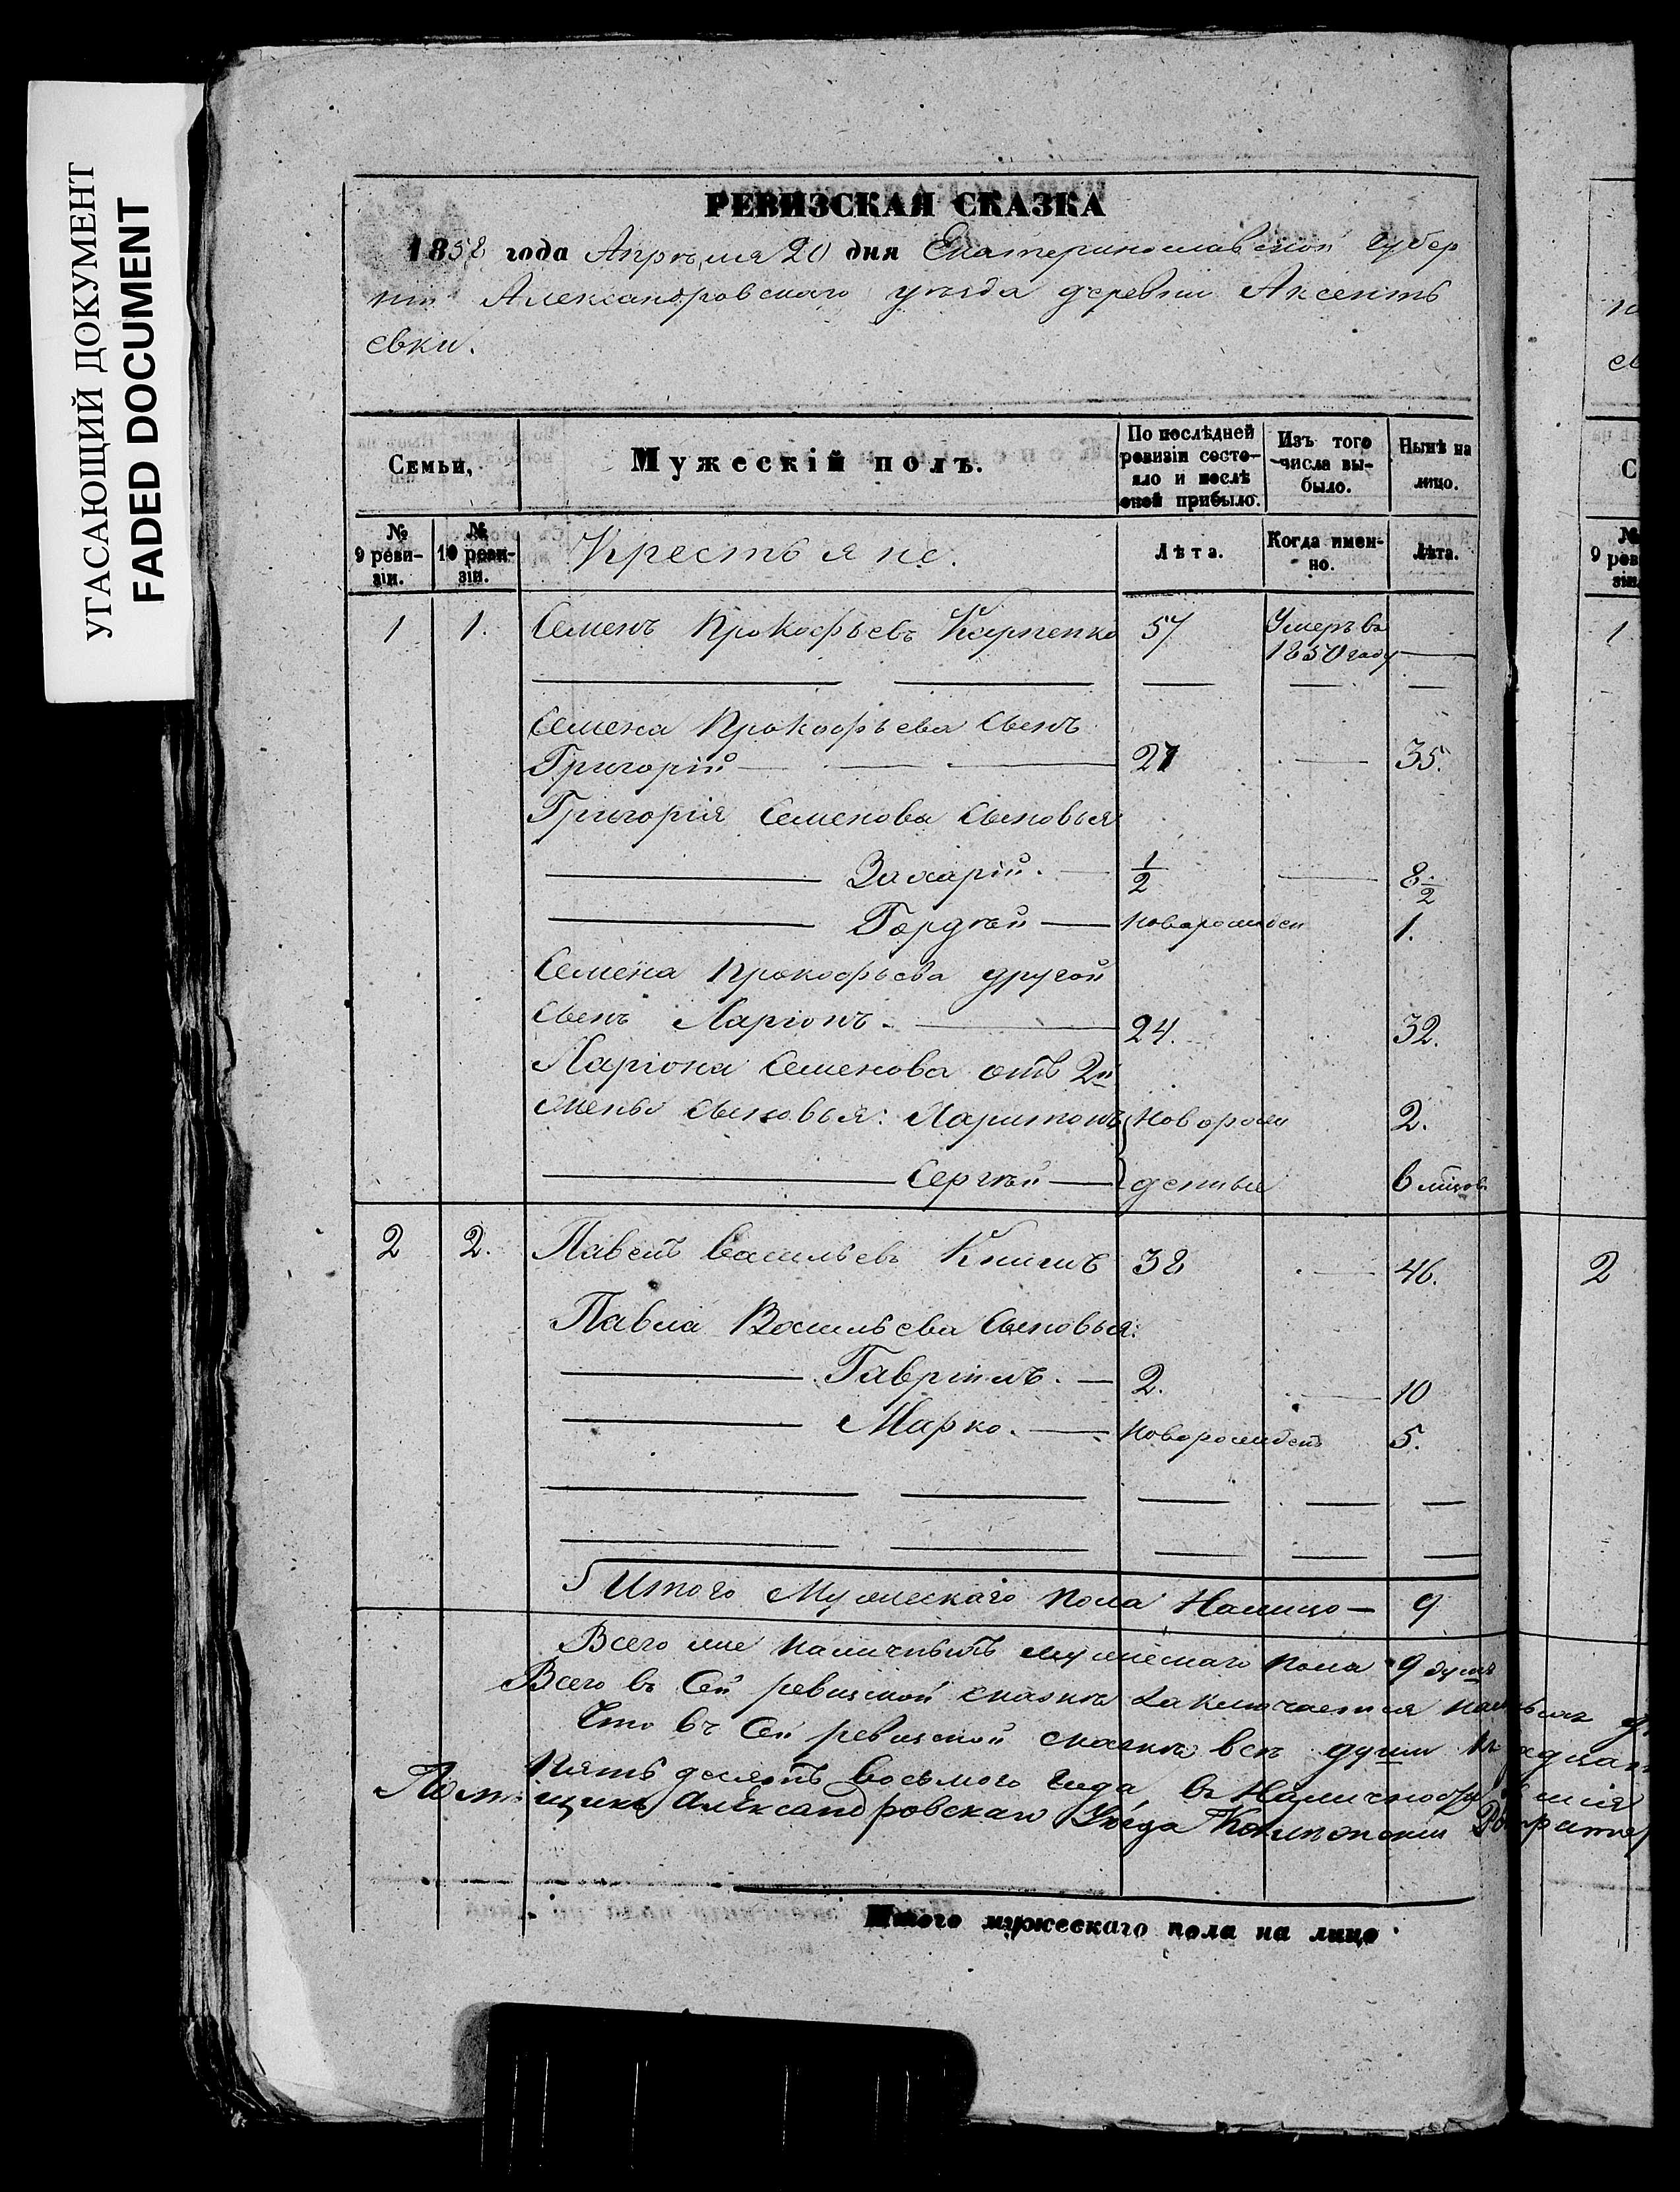 УГАСАЮЩИЙ ДОКУМЕНТ
FADED DOCUMENT
РЕВИЗСКАЯ СКАЗКА
1858 года Апрѣля 20 дня Екатеринославской Губер
ніи Александровскаго уѣзда деревни Аксентъ
евки.
Семьи,
Мужескій полъ.
По послѣдней ревизіи состо-
яло и послѣ оной прибыло.
Изъ того числа вы-
было.
Нынѣ на лицо.
№ 9 реви-
зіи.
№ 10 реви-
зіи.
Крестьяне.
Лѣта.
Когда имен-
но.
Лѣта.
1 1. Семенъ Прокофьевъ Карпенко 57 Умеръ въ
1850 году
Семена Прокофьева Сынъ
Григорій 27 35.
Григорія Семенова Сыновья
Захарій. 1/2 8 1/2
Гордѣй новорожден 1.
Семена Прокофьева другой
Сынъ Ларіонъ. 24. 32.
Ларіона Семенова отъ 2й
жены Сыновья: Харитонъ Новорож 2.
Сергѣй денные 6 мѣсов
2 2. Павелъ Васильевъ 38 46.
Павла Васильева Сыновья:
Гавріилъ. 2. 10
Марко. Новорожденъ 5.
Итого Мужескаго пола Налицо 9
Всего же наличныхъ мужескаго пола 9 душъ
Всего въ Сей ревизской сказкѣ заключается
Что въ Сей ревизской сказкѣ всѣ души
Пять десятъ восьмого года, въ Наличности
Помѣщикъ Александровскаго Уѣзда
Итого мужескаго пола на лицо
С
№ 9 рев
зіи
1
2